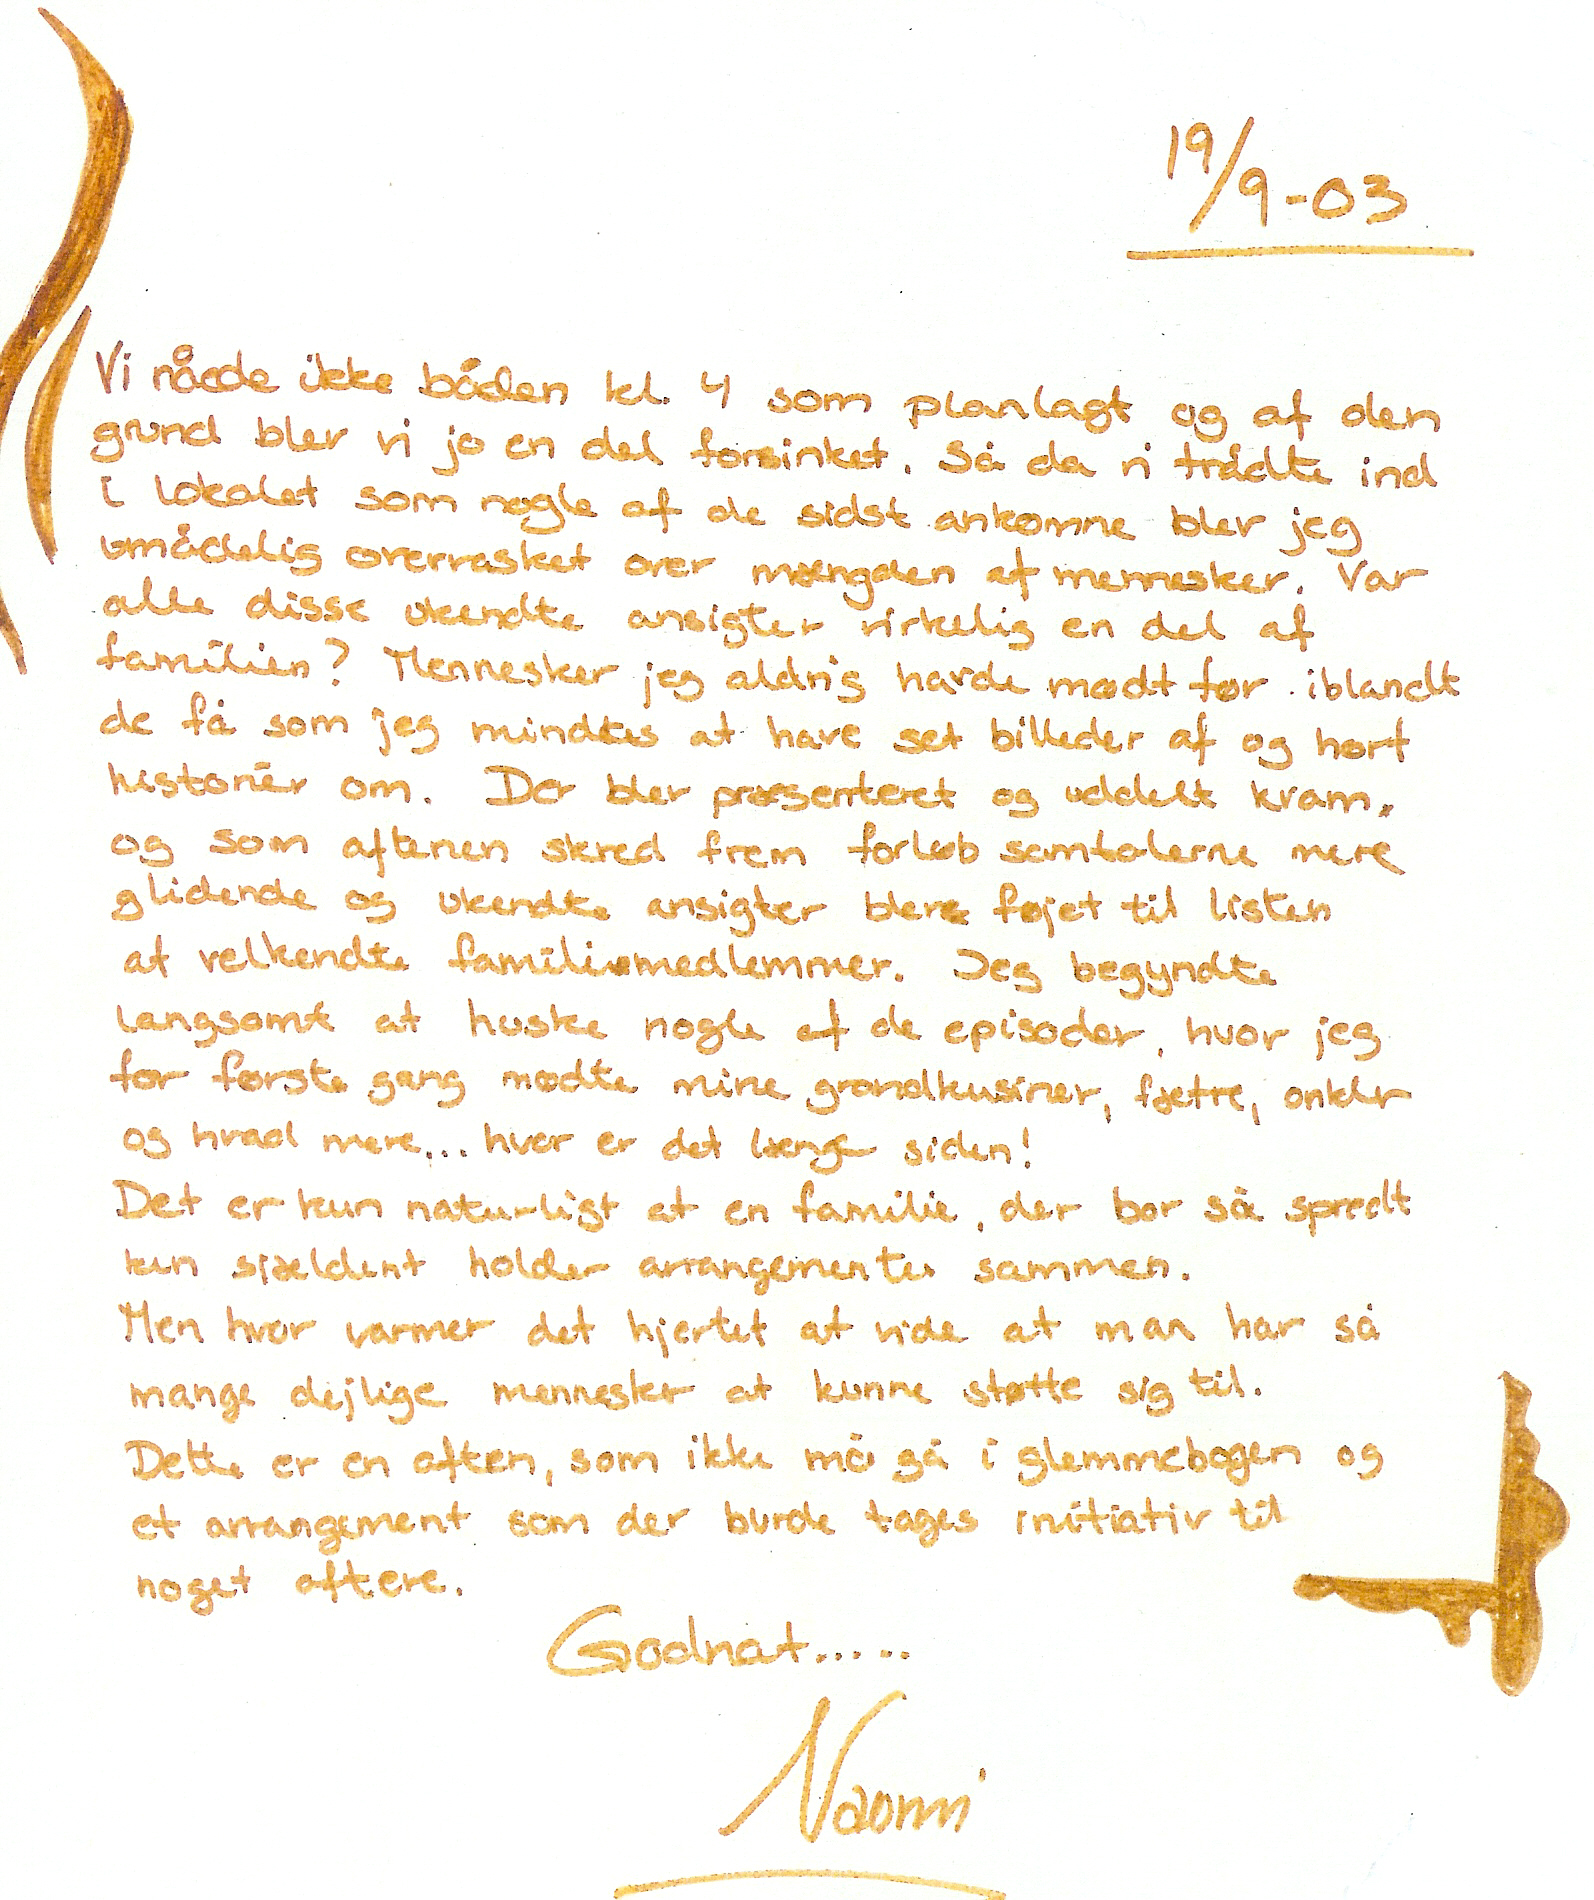 19/9-03
Vi nåede ikke båden kl. 4 som planlagt og af den
grund blev vi jo en del forsinket. Så da vi trådte ind
i lokalet som nogle af de sidst ankomne blev jeg
umådelig overrasket over mængden af mennesker. Var
alle disse ukendte ansigter virkelig en del af
familien? Mennesker jeg aldrig havde mødt før iblandt
de få som jeg mindtes at have set billeder af og hørt
historier om. Der blev præsenteret og uddelt kram,
og som aftenen skred frem forløb samtalerne mere
glidende og ukendte ansigter blev føjet til listen
af velkendte familiemedlemmer. Jeg begyndte
langsomt at huske nogle af de episoder, hvor jeg
for første gang mødte mine grandkusiner, fjetre, onkler
og hvad mere... hvor er det længe siden!
Det er kun naturligt at en familie, der bor så spredt
kun sjældent holder arrangementer sammen.
Men hvor varmer det hjertet at vide at man har så
mange dejlige mennesker at kunne støtte sig til.
Dette er en aften, som ikke må gå i glemmebogen og
et arrangement som der burde tages initiativ til
noget oftere.
Godnat.....
Naomi